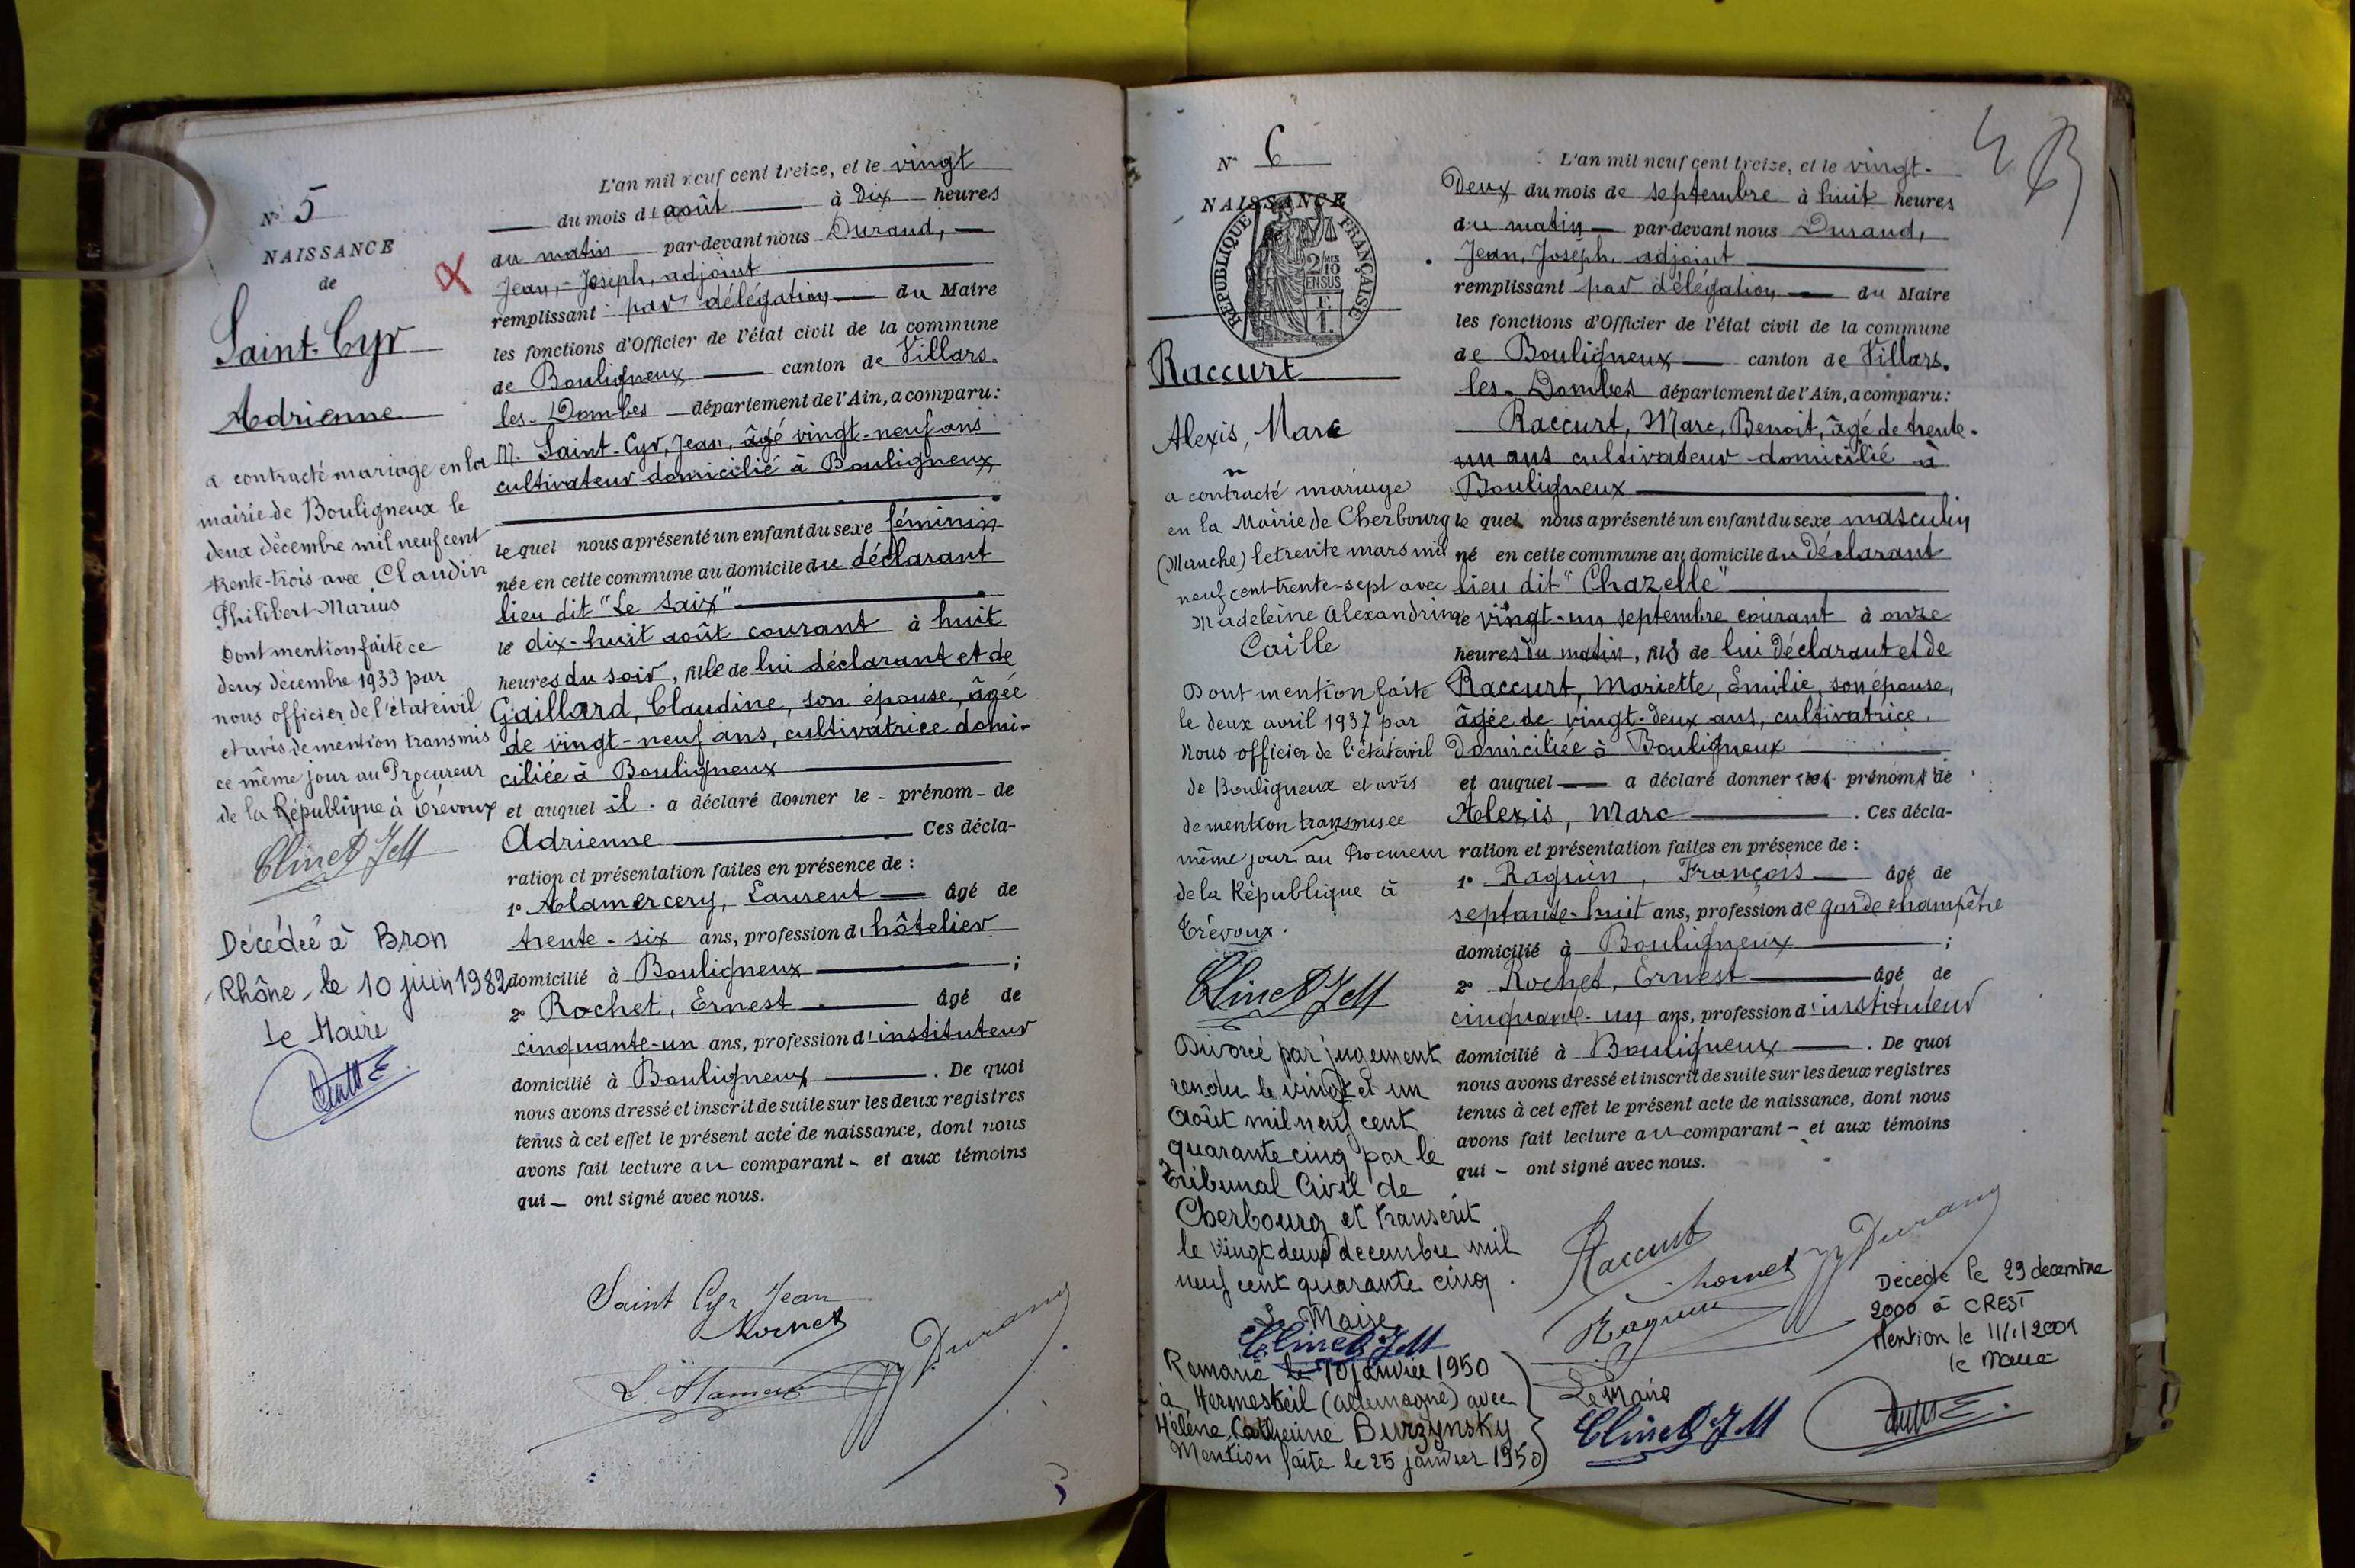 N° 5
NAISSANCE
de
Saint-Cyr
Adrienne
a contracté mariage en la
mairie de Bouligneux le
deux décembre mil neuf cent
trente-trois avec Claudin
Philibert-Marius
Dont mention faite ce
deux décembre 1933 par
nous officier de l'état civil
et avis de mention transmis
ce même jour au Procureur
de la République à Trévoux
Décédée à Bron
Rhône, le 10 juin 1982
Le Maire
L'an mil neuf cent treize, et le vingt
du mois d'août à dix heures
du matin par-devant nous Durand,
Jean-Joseph, adjoint
remplissant par délégation du Maire
les fonctions d'Officier de l'état civil de la commune
de Bouligneux canton de Villars-
les-Dombes département de l'Ain, a comparu:
M. Saint-Cyr, Jean, âgé vingt-neuf ans
cultivateur domicilié à Bouligneux
lequel nous a présenté un enfant du sexe féminin
née en cette commune au domicile du déclarant
lieu dit "Le Saix"
le dix-huit août courant à huit
heures du soir, fille de lui déclarant et de
Gaillard, Claudine, son épouse, âgée
de vingt-neuf ans, cultivatrice domi-
ciliée à Bouligneux
et auquel il a déclaré donner le - prénom - de
Adrienne Ces décla-
ration et présentation faites en présence de :
1° Alamercery, Laurent âgé de
trente-six ans, profession d'hôtelier
domicilié à Bouligneux ;
2° Rochet, Ernest âgé de
cinquante-un ans, profession d'instituteur
domicilié à Bouligneux . De quoi
nous avons dressé et inscrit de suite sur les deux registres
tenus à cet effet le présent acte de naissance, dont nous
avons fait lecture au comparant - et aux témoins
qui - ont signé avec nous.
Saint Cyr Jean
Rochet
JJ Durand
N° 6
NAISSANCE
RÉPUBLIQUE FRANÇAISE
2/10
EN SUS
Raccurt
Alexis, Marc
a contracté mariage
en la Mairie de Cherbourg
(Manche) le trente mars mil
neuf cent-trente-sept avec
Madeleine Alexandrine
Caille
Dont mention faite
le deux avril 1937 par
nous officier de l'état civil
de Bouligneux et avis
de mention transmise
même jour au Procureur
de la République à
Trévoux.
Divorcé par jugement
rendu le vingt et un
Août mil neuf cent
quarante cinq par le
Tribunal Civil de
Cherbourg et transcrit
le vingt deux decembre mil
neuf cent quarante cinq.
Le Maire
Remarié le 10 janvier 1950
à Hermeskeil (allemagne) avec
Hélène Catherine Burzynsky
Mention faite le 25 janvier 1950
L'an mil neuf cent treize, et le vingt-
deux du mois de septembre à huit heures
du matin par-devant nous Durand,
Jean, Joseph, adjoint
remplissant par délégation du Maire
les fonctions d'Officier de l'état civil de la commune
de Bouligneux canton de Villars-
les-Dombes département de l'Ain, a comparu:
Raccurt, Marc, Benoit, âgé de trente-
un ans cultivateur domicilié à
Bouligneux
lequel nous a présenté un enfant du sexe masculin
né en cette commune au domicile du déclarant
lieu dit "Chazelle"
le vingt-un septembre courant à onze
heures du matin, fils de lui déclarant et de
Raccurt, Mariette, Emilie, son épouse,
âgée de vingt-deux ans, cultivatrice,
domiciliée à Bouligneux
et auquel a déclaré donner les prénoms de
Alexis, Marc . Ces décla-
ration et présentation faites en présence de :
1° Raguin, François âgé de
septante-huit ans, profession de garde champêtre
domicilié à Bouligneux ;
2° Rochet, Ernest âgé de
cinquante-un ans, profession d'instituteur
domicilié à Bouligneux . De quoi
nous avons dressé et inscrit de suite sur les deux registres
tenus à cet effet le présent acte de naissance, dont nous
avons fait lecture au comparant - et aux témoins
qui - ont signé avec nous.
Raccurt
Rochet
JJ Durand
Raguin
Décédé le 29 decembre
2000 à CREST
Mention le 11/1/2001
le Maire
Le Maire